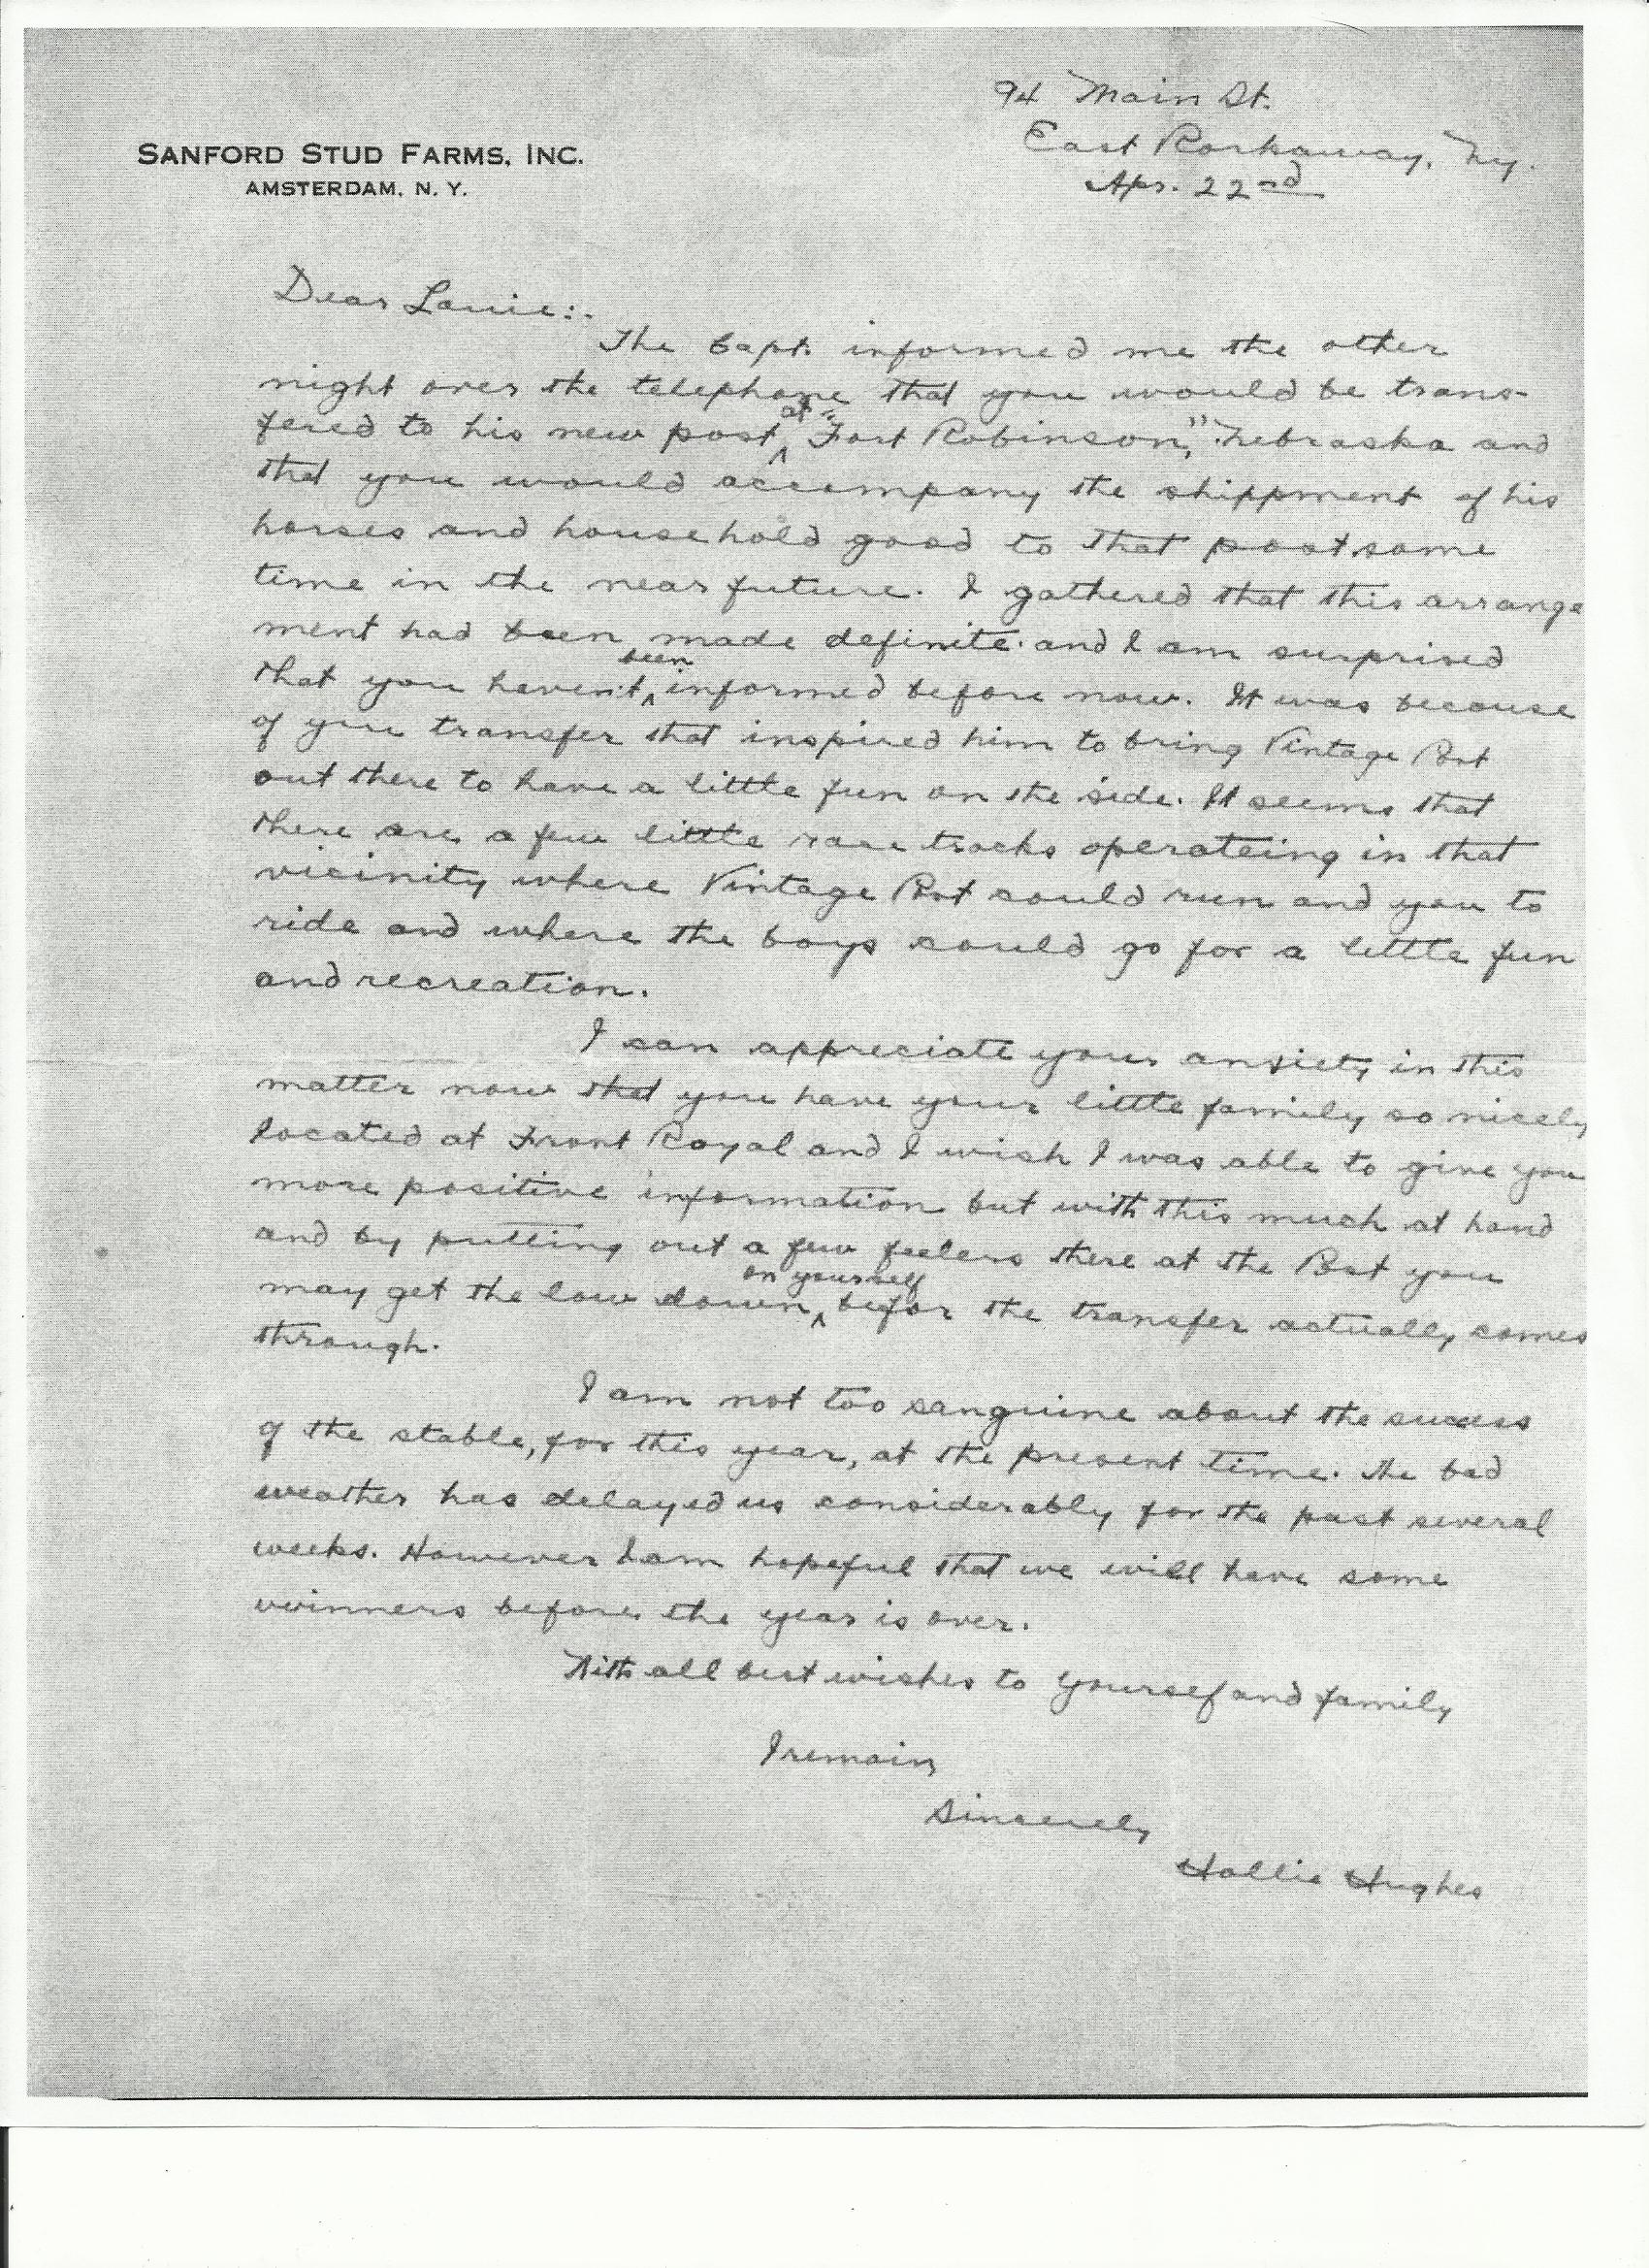 94 Main St.
East Rockaway, Ny.
Apr. 22nd
SANFORD STUD FARMS, INC.
AMSTERDAM, N. Y.
Dear Louie:-
The Capt. informed me the other
night over the telephone that you would be trans-
fered to his new post at "Fort Robinson," Nebraska and
that you would accompany the shippment of his
horses and household good to that post some
time in the near future. I gathered that this arrange
ment had been made definite and I am surprised
that you haven't been informed before now. It was because
of you transfer that inspired him to bring Vintage Port
out there to have a little fun on the side. It seems that
there are a few little race tracks operateing in that
vicinity where Vintage Port could run and you to
ride and where the boys could go for a little fun
and recreation.
I can appreciate your anxiety in this
matter now that you have your little family so nicely
located at Front Royal and I wish I was able to give you
more positive information but with this much at hand
and by putting out a few feelers there at the Post you
may get the low down on yourself befor the transfer actually comes
through.
I am not too sanguine about the success
of the stable, for this year, at the present time. The bad
weather has delayed us considerably for the past several
weeks. However I am hopeful that we will have some
winners before the year is over.
With all best wishes to yourself and family
I remain
Sincerely
Hollie Hughes